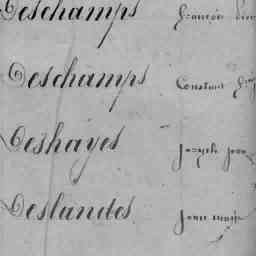 Deschamps
Deschamps Constant
Deshayes Joseph Jean
Deslandes Jean marie